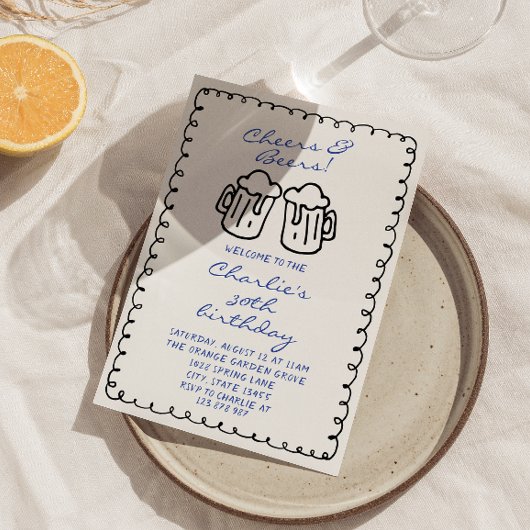 Cheers &
Beers!
WELCOME TO THE
Charlie's
30th
birthday
SATURDAY, AUGUST 12 AT 11AM
THE ORANGE GARDEN GROVE
1028 SPRING LANE
CITY, STATE 13455
RSVP TO CHARLIE AT
123 878 987